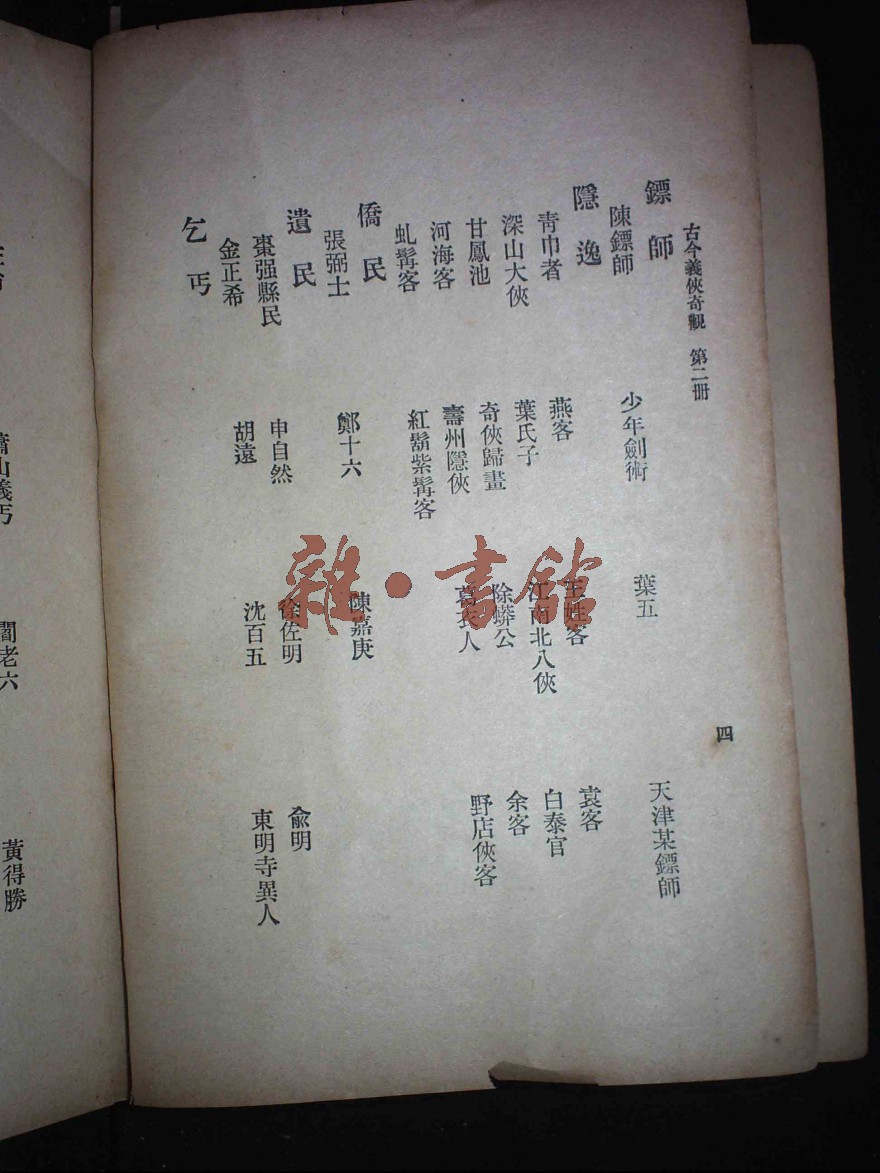 古今義俠奇觀 第二册
四
鏢師
陳鏢師 少年劍術 葉五 天津某鏢師
隱逸
青巾者 燕客 王姓客 袁客
深山大俠 葉氏子 江南北八俠 白泰官
甘鳳池 奇俠歸畫 除蟒公 余客
河海客 壽州隱俠 葛衣人 野店俠客
虬髯客 紅鬍紫髯客
僑民
張弼士 鄭十六 陳嘉庚
遺民
棗强縣民 申自然 徐佐明 俞明
金正希 胡遠 沈百五 東明寺異人
乞丐
蕭山義丐 閻老六 黃得勝
雜·書館